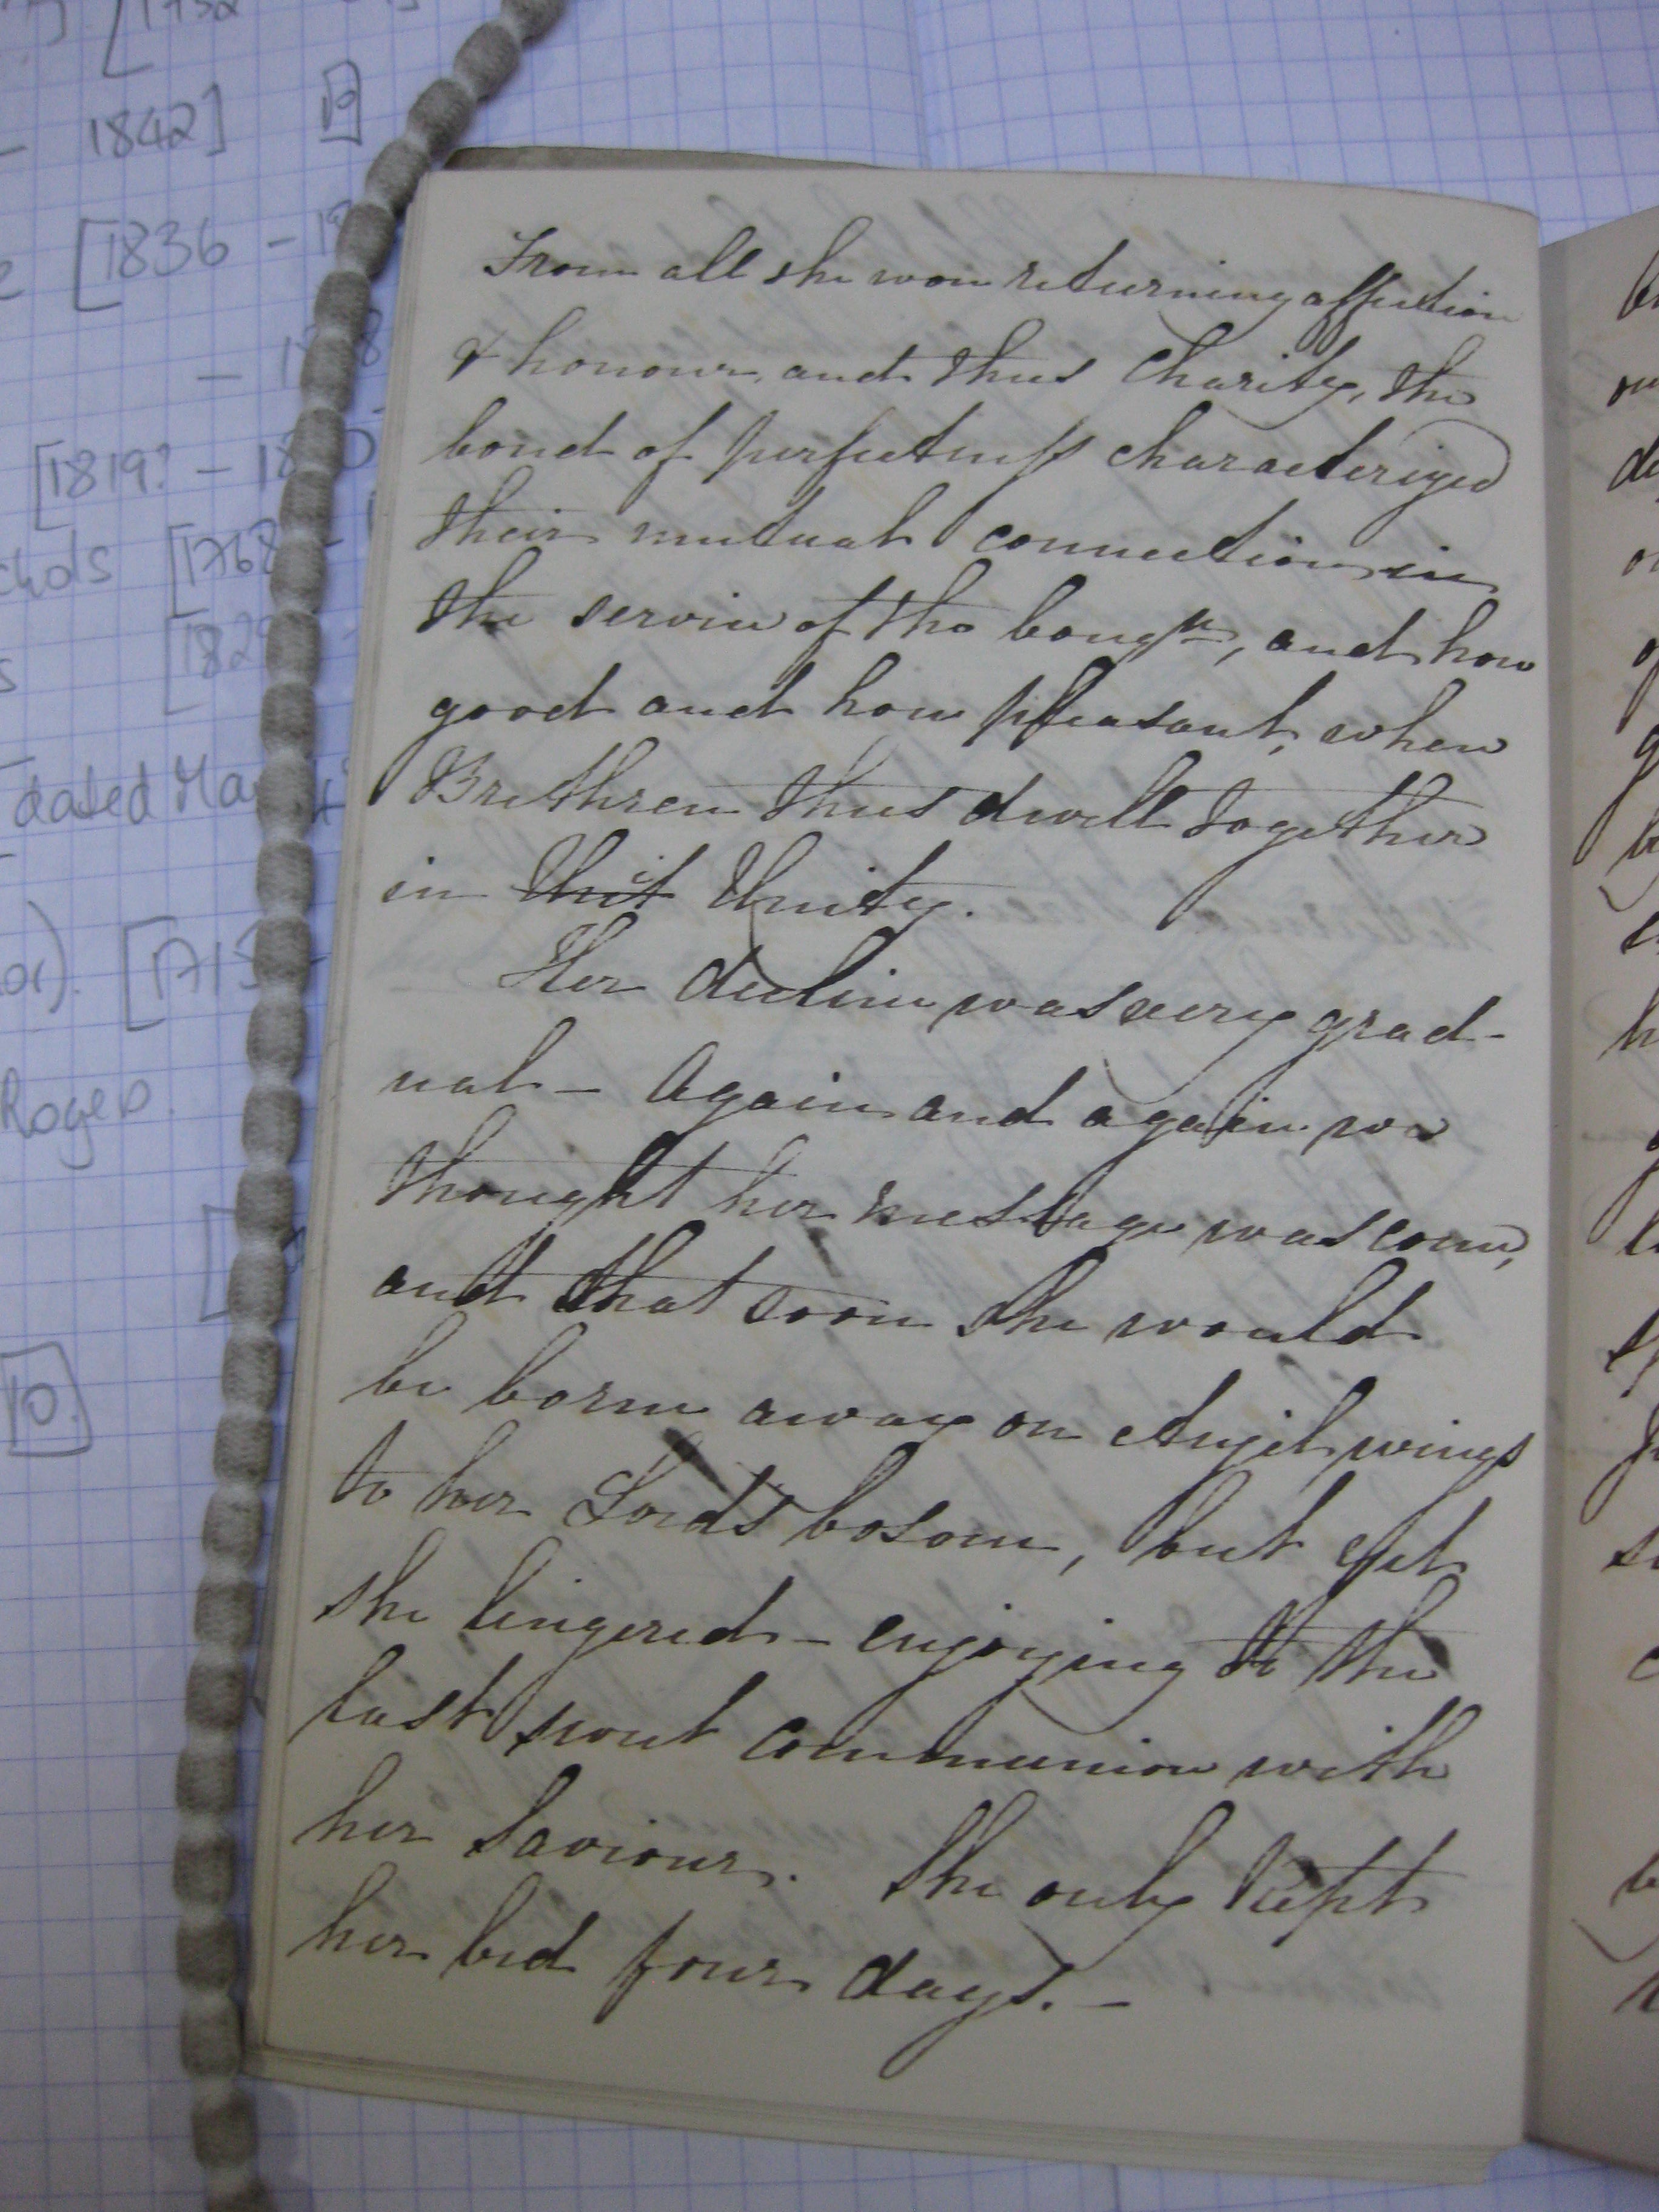 1842] 10
[1836 - 
[1819? - 18
[1768 -
dated Ma
[1713 -
10.
From all she won returning affection
& honour, and thus Charity, the
bond of perfectness characterized
their mutual connection in
the service of the congn, and how
good and how pleasant, when
Brethren thus dwell together
in thit Unity.
Her decline was very grad-
ual - Again and again we
thought her message was come,
and that soon she would
be borne away on Angel wings
to her Lords bosom, but yet
she lingered - enjoying to the
last sweet communion with
her Saviour. She only kept
her bed four days. -